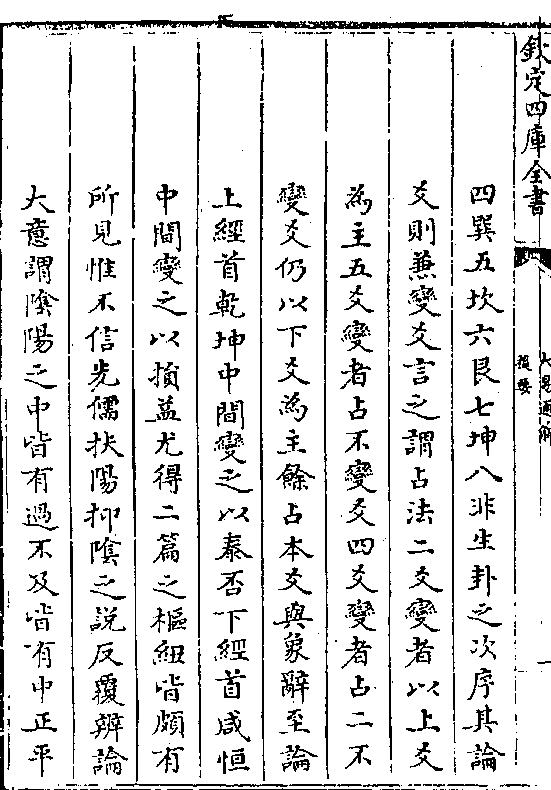 欽定四庫全書
大易通解
提要
一
四巽五坎六艮七坤八非生卦之次序其論
爻則兼變爻言之謂占法二爻變者以上爻
為主五爻變者占不變爻四爻變者占二不
變爻仍以下爻為主餘占本爻與彖辭至論
上經首乾坤中間變之以泰否下經首咸恒
中間變之以損益尤得二篇之樞紐皆頗有
所見惟不信先儒扶陽抑陰之說反覆辨論
大意謂陰陽之中皆有過不及皆有中正平